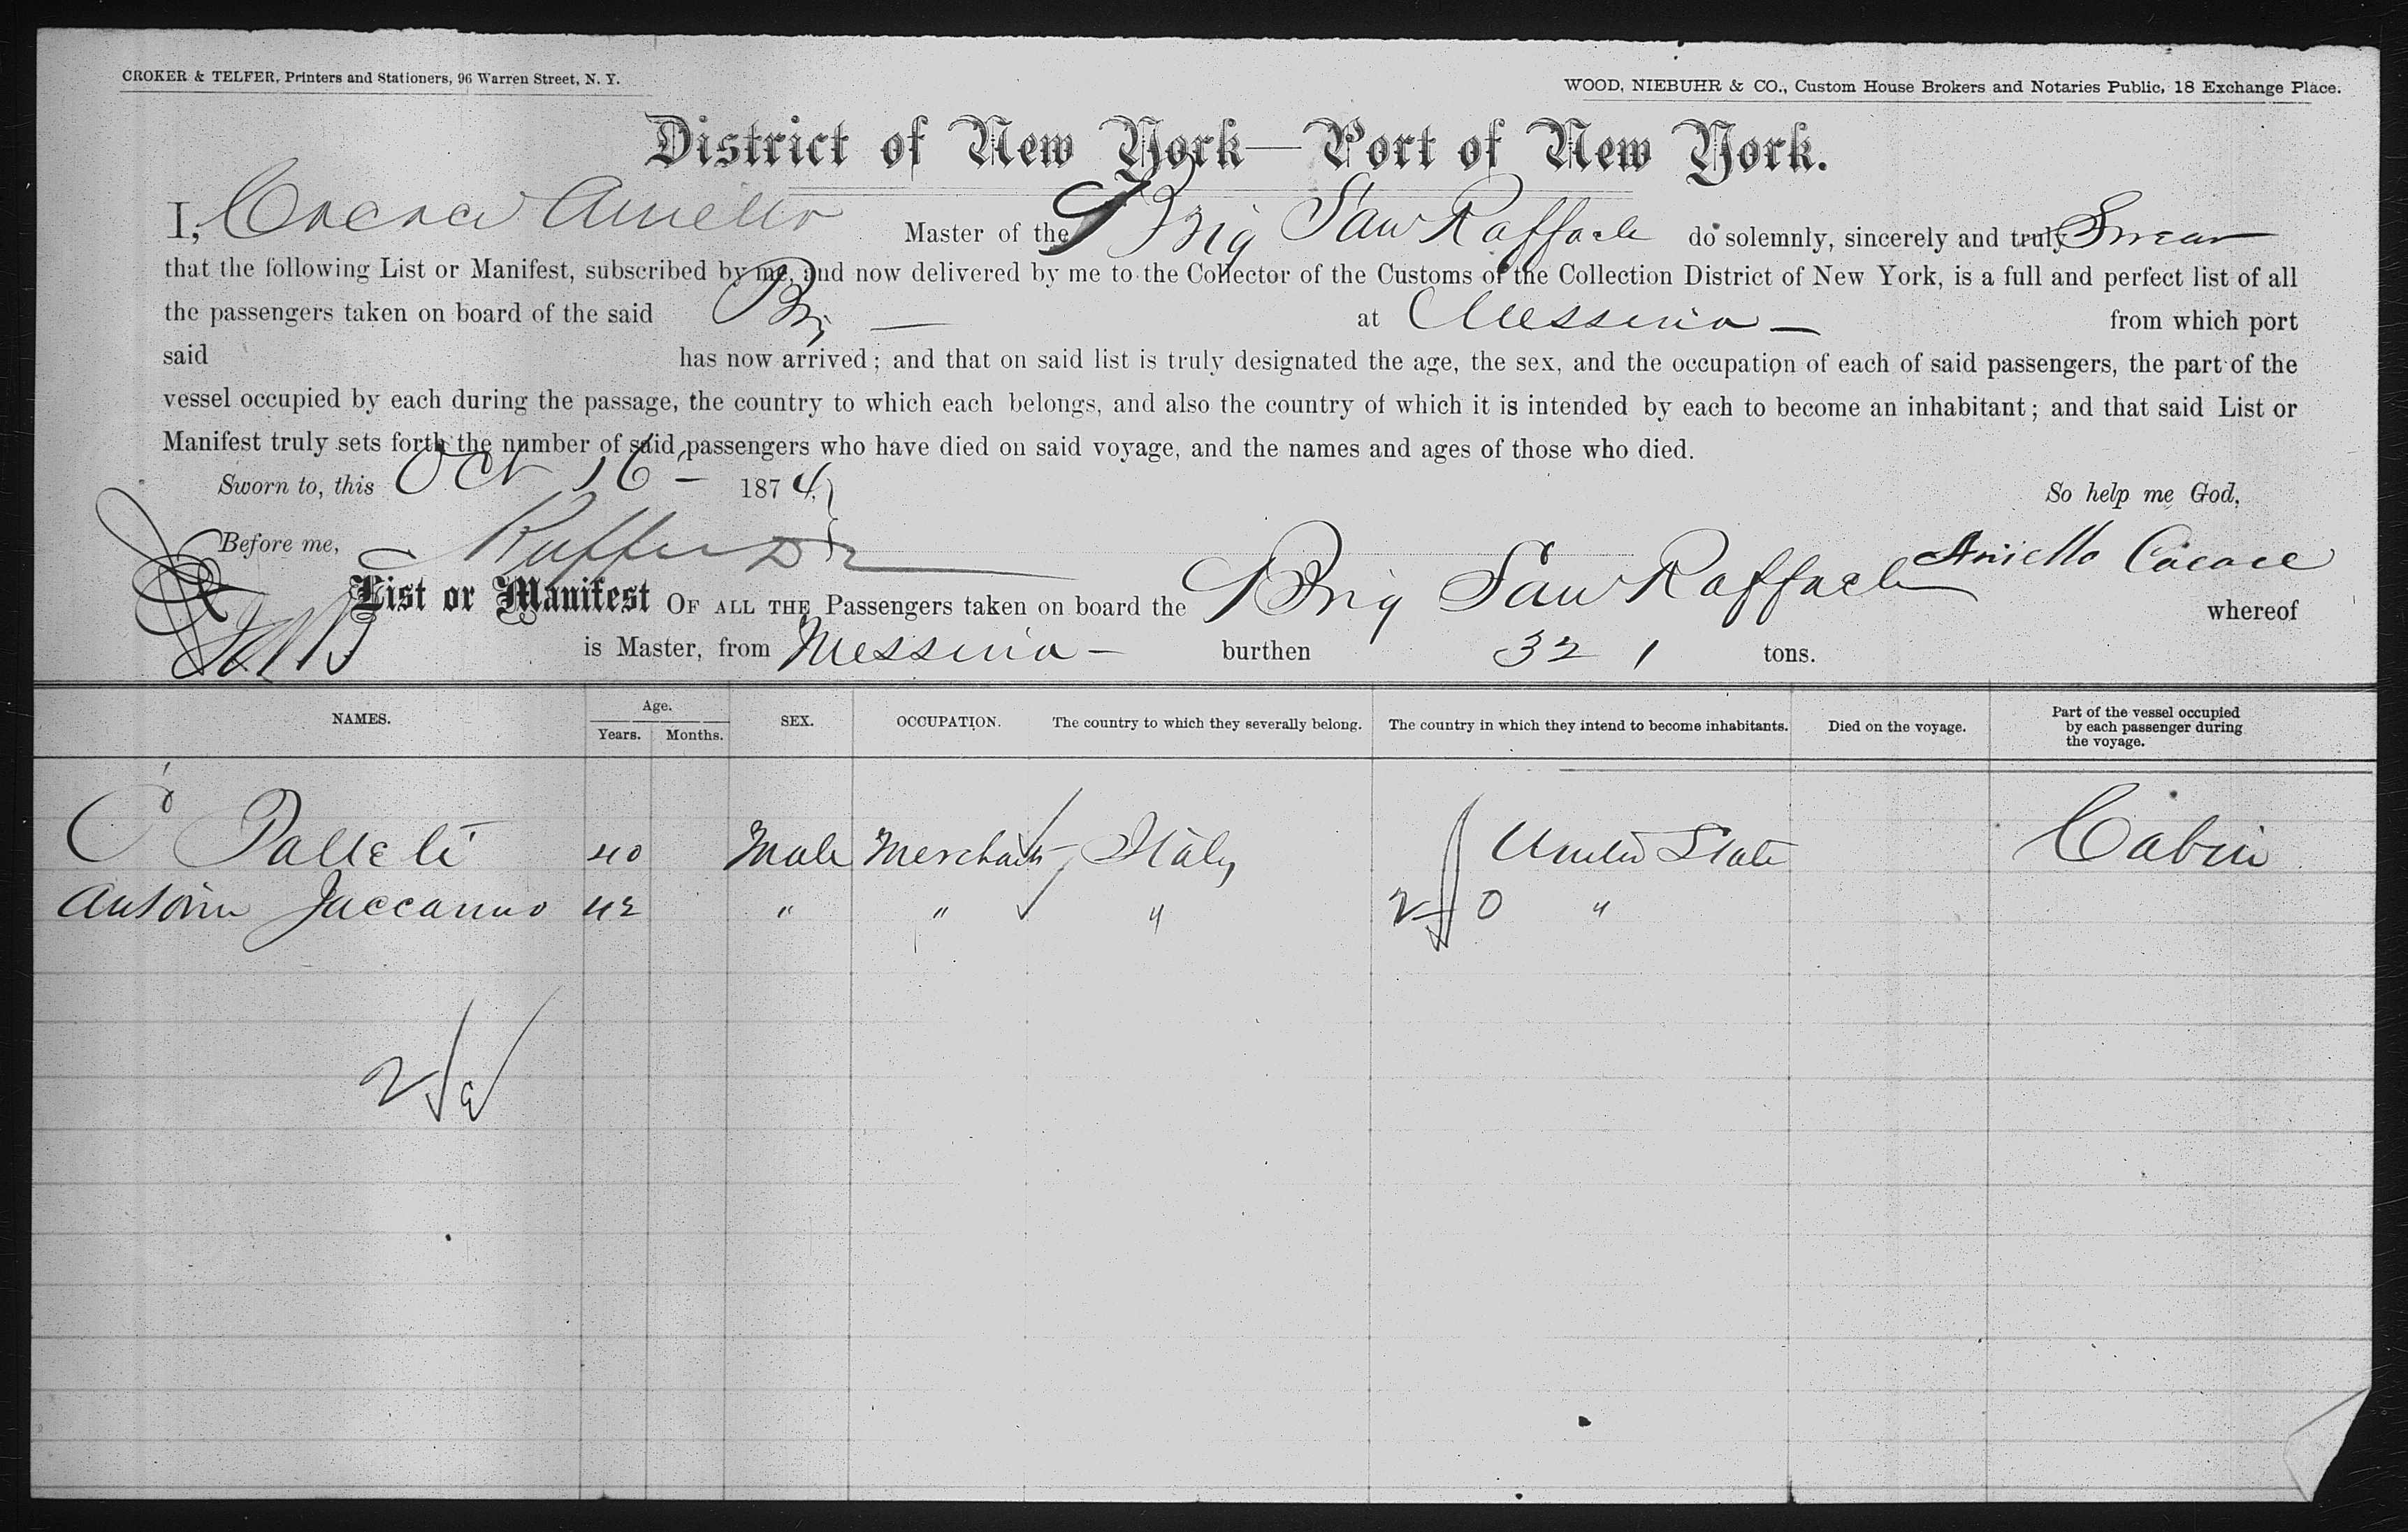 CROKER & TELFER, Printers and Stationers, 96 Warren Street, N. Y.
WOOD, NIEBUHR & CO., Custom House Brokers and Notaries Public, 18 Exchange Place.
District of New York—Port of New York.
I, Cacace Aniello Master of the Brig San Raffaele do solemnly, sincerely and truly Swear
that the following List or Manifest, subscribed by me, and now delivered by me to the Collector of the Customs of the Collection District of New York, is a full and perfect list of all
the passengers taken on board of the said Brig — at Messina — from which port
said has now arrived; and that on said list is truly designated the age, the sex, and the occupation of each of said passengers, the part of the
vessel occupied by each during the passage, the country to which each belongs, and also the country of which it is intended by each to become an inhabitant; and that said List or
Manifest truly sets forth the number of said passengers who have died on said voyage, and the names and ages of those who died.
Sworn to, this Oct 16 - 1874 So help me God,
Before me, Aniello Cacace
List or Manifest OF ALL THE Passengers taken on board the Brig San Raffaele whereof
is Master, from Messina - burthen 321 tons.
NAMES. Age. Years. Months. SEX. OCCUPATION. The country to which they severally belong. The country in which they intend to become inhabitants. Died on the voyage. Part of the vessel occupied by each passenger during the voyage.
40 Male Merchant Italy United State Cabin
42 " " " 2 0 "
2